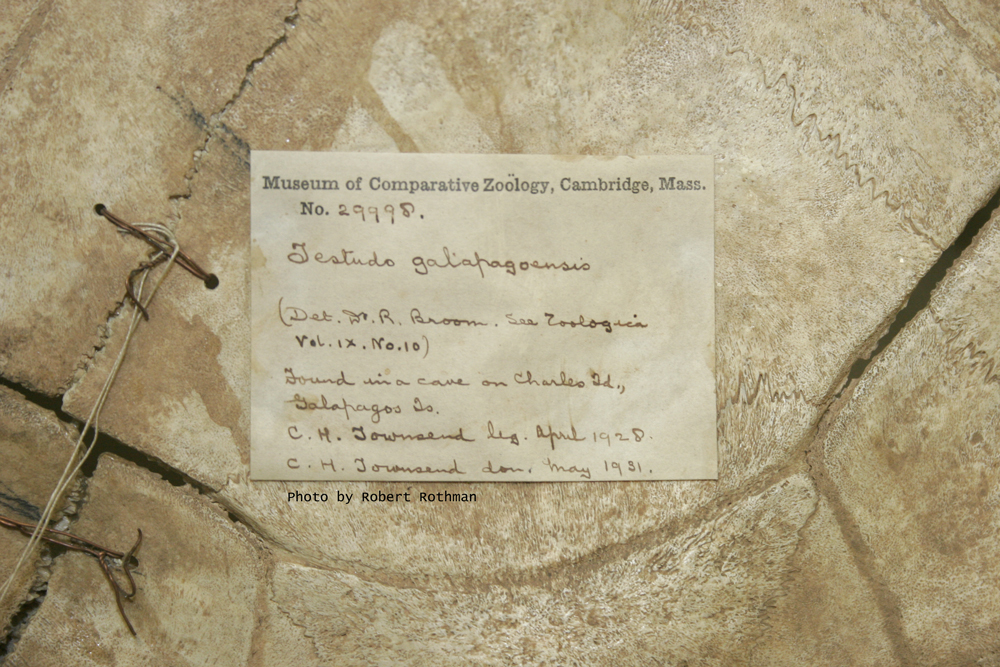 Museum of Comparative Zoölogy, Cambridge, Mass.
No. 29998.
Testudo galapagoensis
(Det. Dr. R. Broom. See Zoologica
Vol. IX. No. 10)
Found in a cave on Charles Id.,
Galapagos Is.
C. H. Townsend leg. April 1928.
C. H. Townsend don. May 1931.
Photo by Robert Rothman